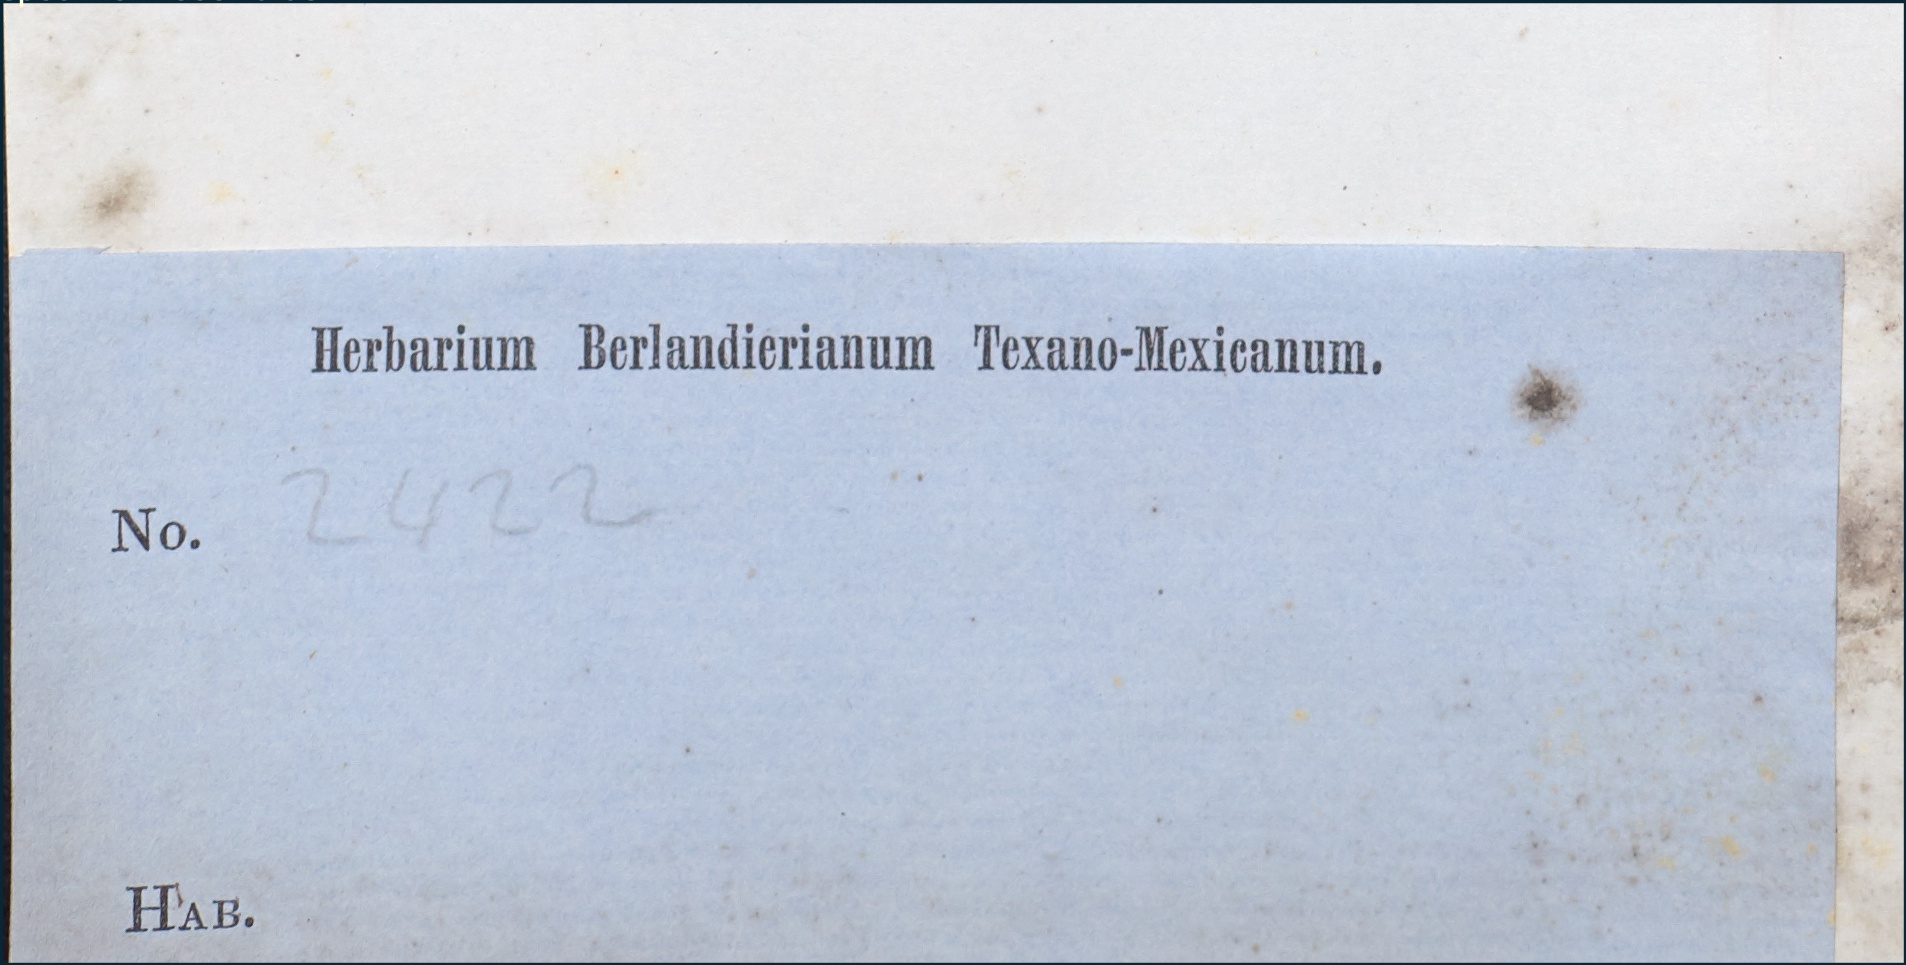 Herbarium Berlandierianum Texano-Mexicanum.
No. 2422
Hab.